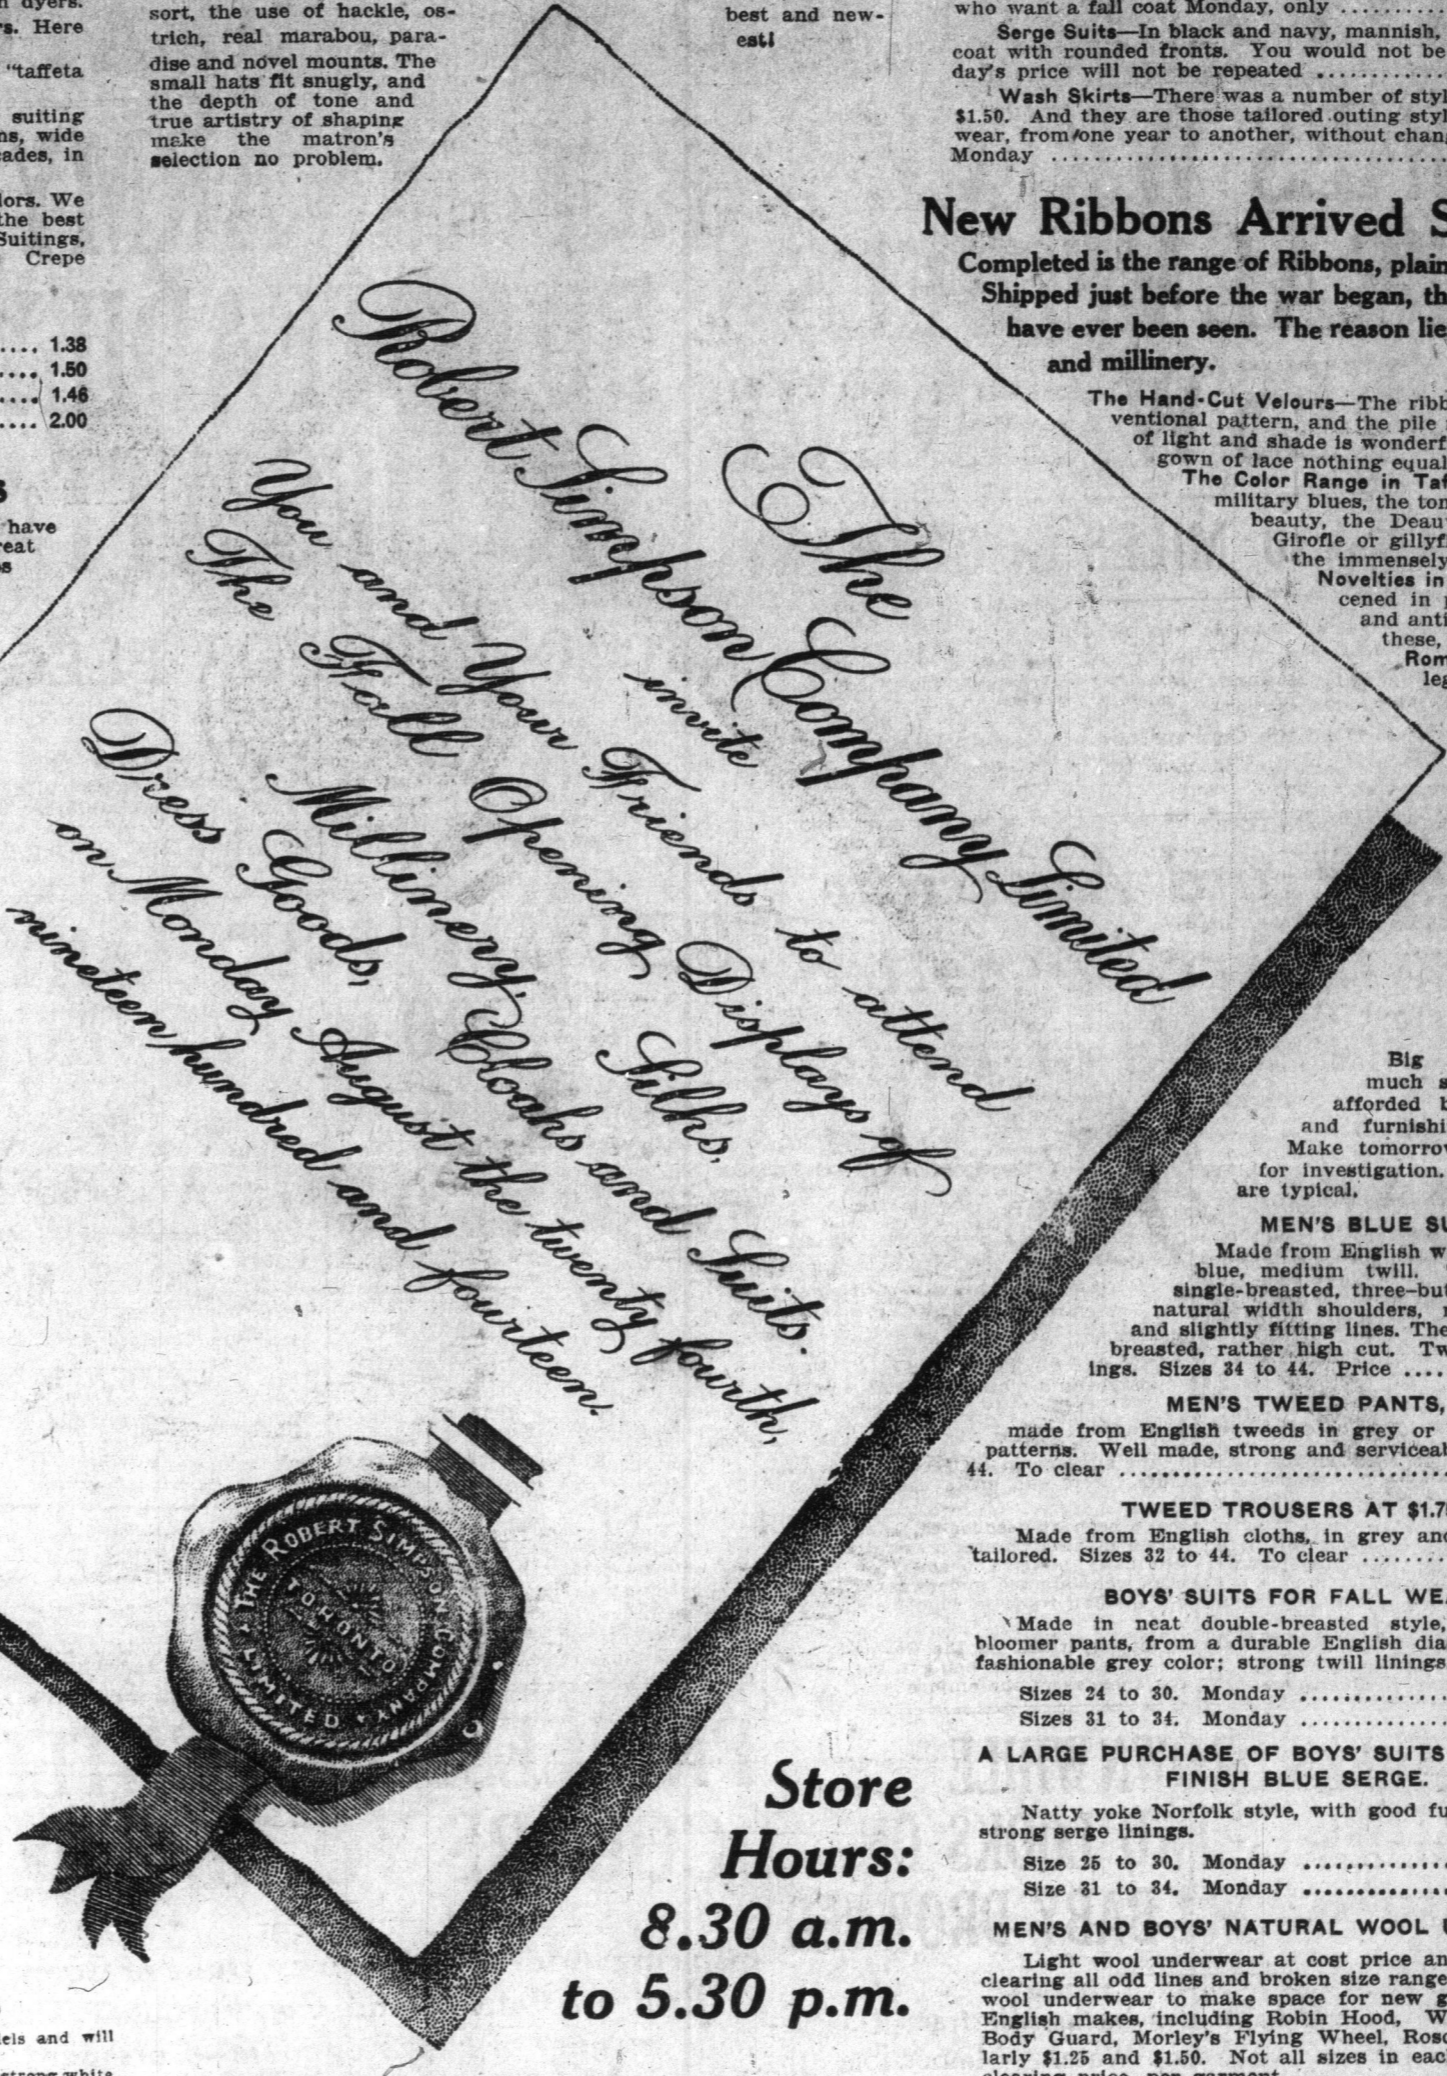 dyers.
Here
"taffeta
suiting
wide
in
We
the best
Suitings,
Crepe
.... 1.38
.... 1.50
.... 1.46
.... 2.00
have
sort, the use of hackle, os-
trich, real marabou, para-
dise and novel mounts. The
small hats fit snugly, and
the depth of tone and
true artistry of shaping
make the matron's
selection no problem.
best and new-
est!
The
Robert Simpson Company Limited
invite
You and Your Friends to attend
The Fall Opening Displays of
Millinery, Silks,
Dress Goods, Cloaks and Suits.
on Monday August the twenty fourth,
nineteen hundred and fourteen.
THE ROBERT SIMPSON COMPANY LIMITED
TORONTO
Store
Hours:
8.30 a.m.
to 5.30 p.m.
els and will
white
who want a fall coat Monday, only ..........
Serge Suits—In black and navy, mannish,
coat with rounded fronts. You would not be
day's price will not be repeated ..........
Wash Skirts—There was a number of
$1.50. And they are those tailored outing
wear, from one year to another, without
Monday ..........
New Ribbons Arrived
Completed is the range of Ribbons, plain
Shipped just before the war began,
have ever been seen. The reason
and millinery.
The Hand-Cut Velours—The
ventional pattern, and the pile
of light and shade is
gown of lace nothing
The Color Range in
military blues, the
beauty, the
Girofle or
the immensely
Novelties in
cened in
and
these,
Big
much
afforded
and
Make
for investigation.
are typical.
MEN'S BLUE
Made from English
blue, medium twill.
single-breasted,
natural width shoulders,
and slightly fitting lines.
breasted, rather high cut.
ings. Sizes 34 to 44. Price ....
MEN'S TWEED PANTS,
made from English tweeds in grey or
patterns. Well made, strong and
44. To clear ..........
TWEED TROUSERS AT
Made from English cloths, in grey
tailored. Sizes 32 to 44. To clear ........
BOYS' SUITS FOR FALL
Made in neat double-breasted style,
bloomer pants, from a durable English
fashionable grey color; strong twill linings
Sizes 24 to 30. Monday ..........
Sizes 31 to 34. Monday ..........
A LARGE PURCHASE OF BOYS' SUITS
FINISH BLUE SERGE.
Natty yoke Norfolk style, with good
strong serge linings.
Size 25 to 30. Monday ..........
Size 31 to 34. Monday ..........
MEN'S AND BOYS' NATURAL WOOL
Light wool underwear at cost price
clearing all odd lines and broken size
wool underwear to make space for new
English makes, including Robin Hood,
Body Guard, Morley's Flying Wheel,
larly $1.25 and $1.50. Not all sizes in